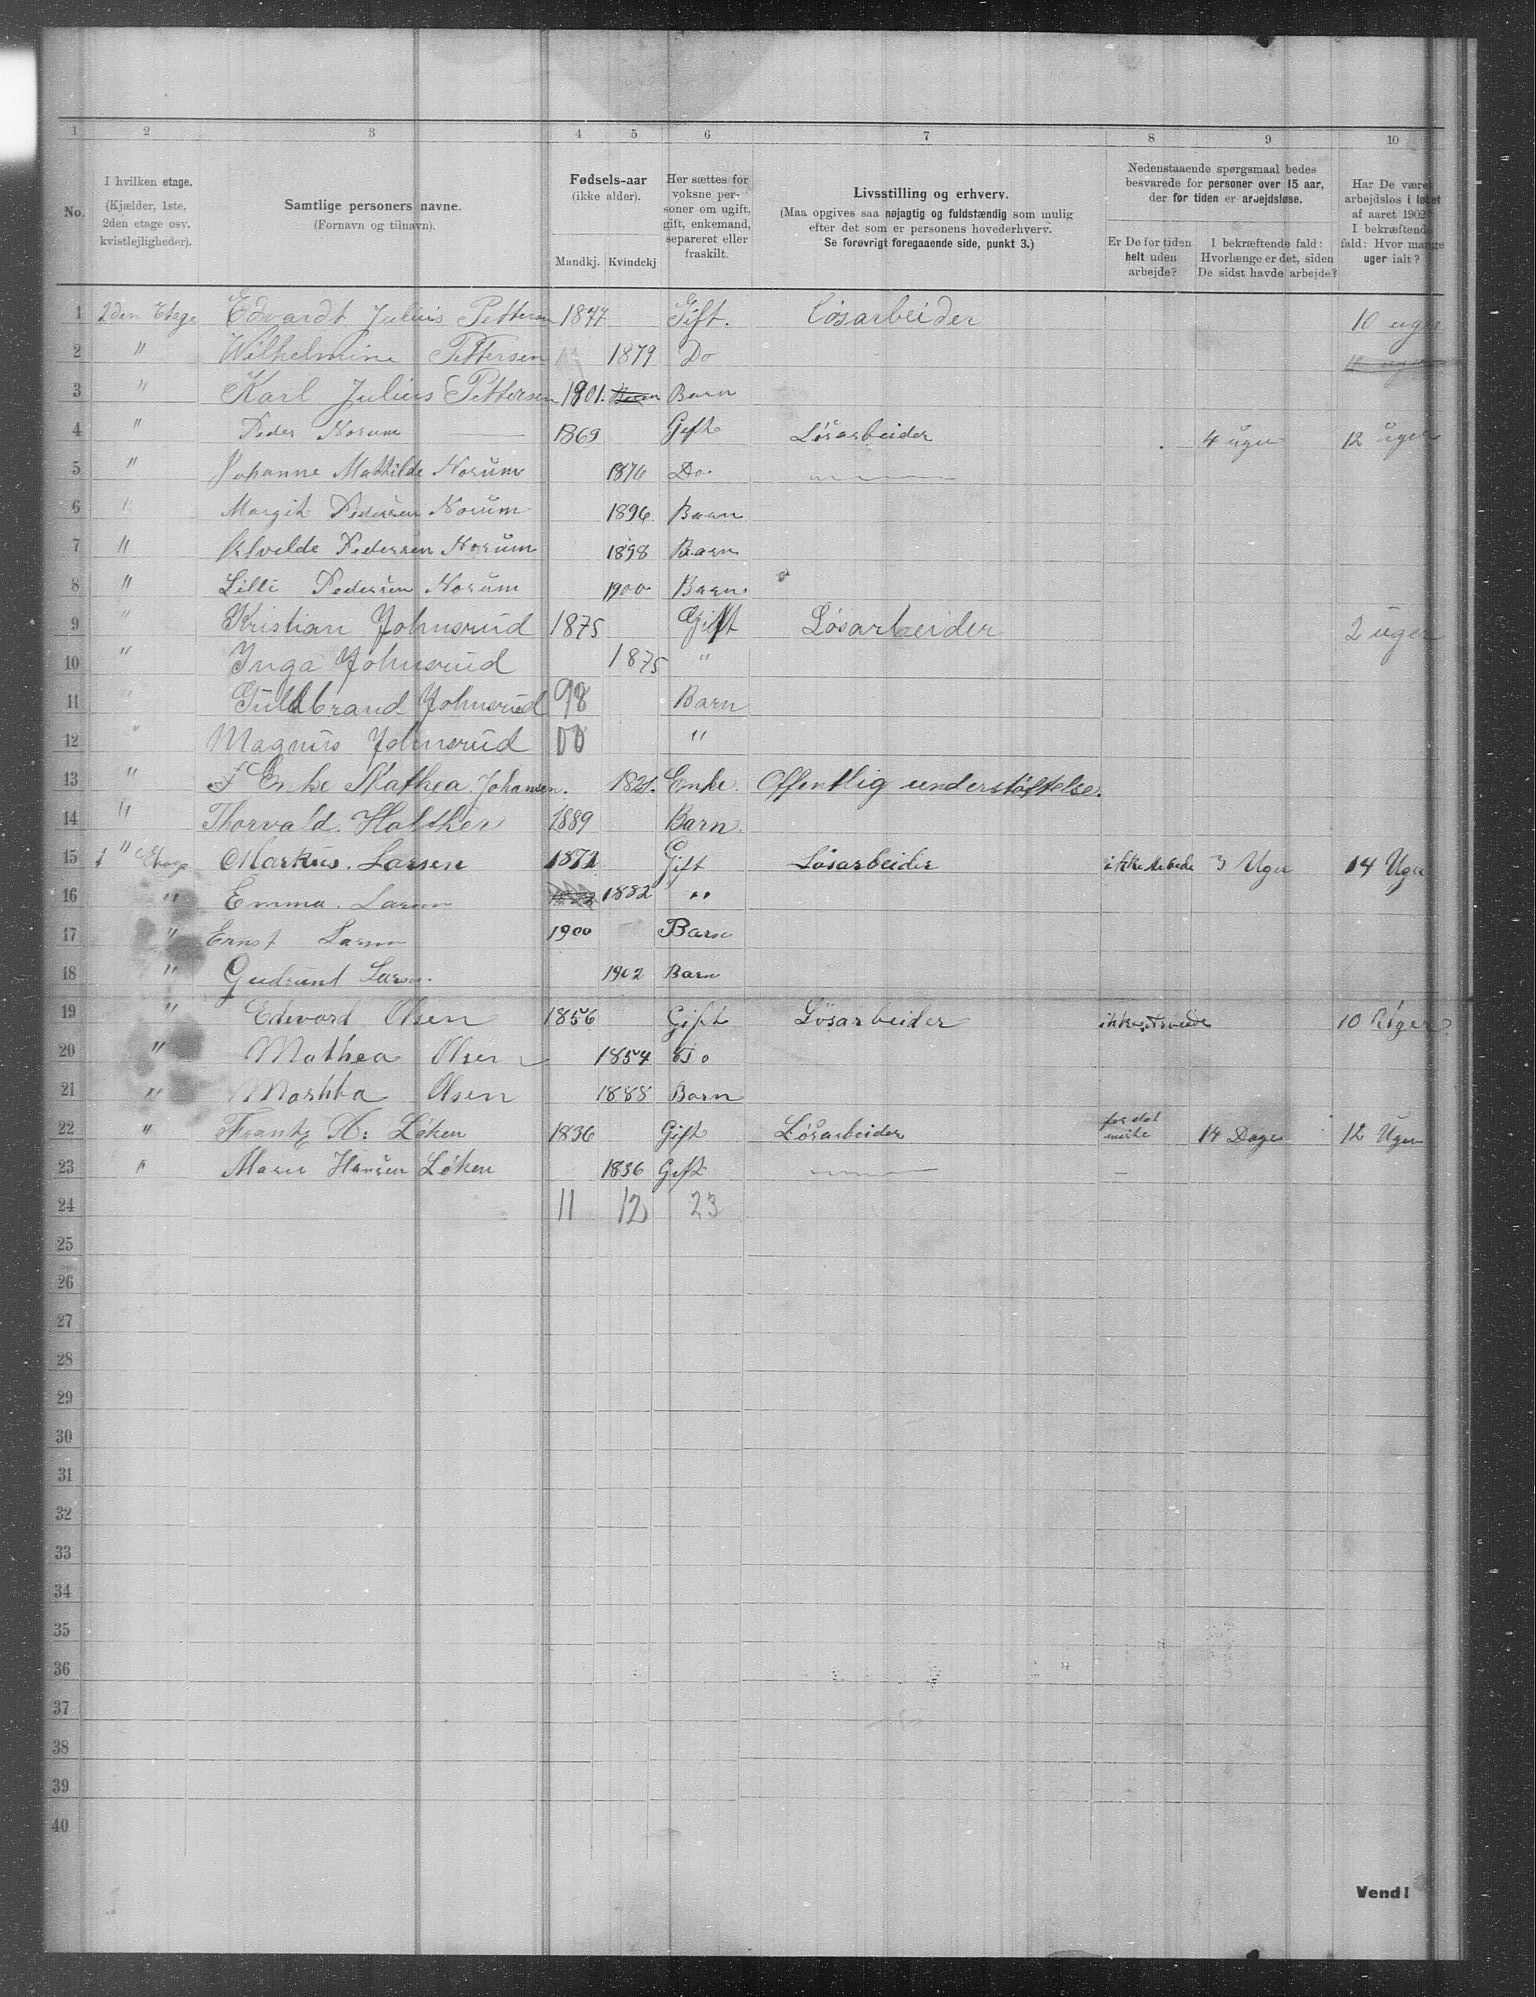 1 2 3 4 5 6 7 8 9 10
No.
I hvilken etage.
(Kjælder, 1ste,
2den etage osv.
kvistlejligheder).
Samtlige personers navne.
(Fornavn og tilnavn).
Fødsels-aar
(ikke alder).
Mandkj. Kvindekj
Her sættes for
voksne per-
soner om ugift,
gift, enkemand,
separeret eller
fraskilt.
Livsstilling og erhverv.
(Maa opgives saa nøjagtig og fuldstændig som mulig
efter det som er personens hovederhverv.
Se forøvrigt foregaaende side, punkt 3.)
Nedenstaaende spørgsmaal bedes
besvarede for personer over 15 aar,
der for tiden er arbejdsløse.
Er De for tiden
helt uden
arbejde?
I bekræftende fald:
Hvorlænge er det, siden
De sidst havde arbejde?
Har De været
arbejdsløs i løbet
af aaret 1902?
I bekræftende
fald: Hvor mange
uger ialt?
1 2den Etage Edvardt Julius Pettersen 1877 Gift. Løsarbeider 10 uger
2 " Wilhelmine Pettersen 1879 Do
3 " Karl Julius Pettersen 1901. Barn Barn
4 " Peder Norum 1869 Gift Løsarbeider 4 uger 12 uger
5 " Johanne Mathilde Norum 1876 Do.
6 " Margit Pedersen Norum 1896 Barn
7 " Alvilde Pedersen Norum 1898 Barn
8 " Lilli Pedersen Norum 1900 Barn
9 " Kristian Johnsrud 1875 Gift Løsarbeider 2 uger
10 " Inga Johnsrud 1875 "
11 " Guldbrand Johnsrud 98 Barn
12 " Magnus Johnsrud 00 "
13 " Enke Mathea Johansen. 1821. Enke. Offentlig understøttelse.
14 " Thorvald. Halther 1889 Barn.
15 1 " Etage Markus. Larsen 1872 Gift Løsarbeider ikke Arbeide 3 Uger 14 Uger
16 " Emma. Larsen 1882 "
17 " Ernst Larsen 1900 Barn
18 " Gudrund Larsen. 1902 Barn
19 " Edevard Olsen 1856 Gift Løsarbeider ikke Arbeide 10 Uger
20 " Mathea Olsen 1854 Do
21 " Marhta Olsen 1888 Barn
22 " Frantz A: Løken 1836 Gift Løsarbeider for det meste 14 Dage 12 Uger
23 " Marie Hansen Løken 1836 Gift —
24 11 12 23
25
26
27
28
29
30
31
32
33
34
35
36
37
38
39
40
Vend!